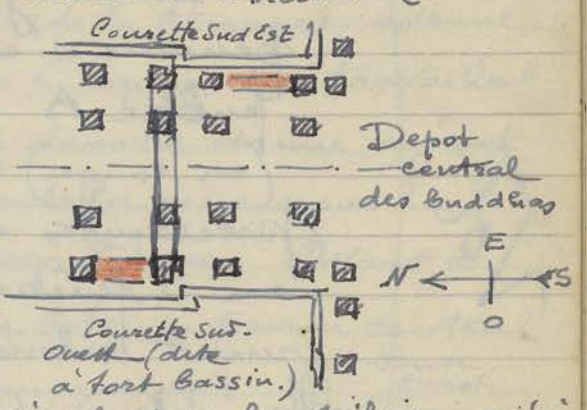 Courette Sud Est
Depot
central
des Buddhas
E
N
S
O
Courette Sud-
Ouest (dite
à tort bassin.)